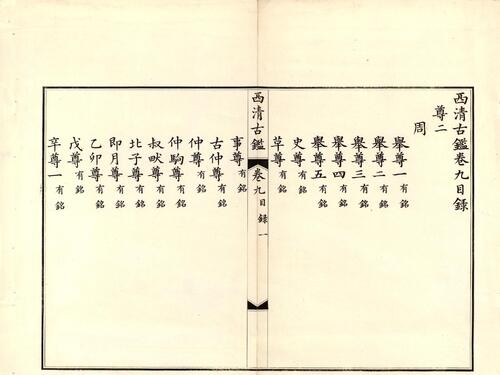 西清古鑑卷九目錄
尊二
周
舉尊一 有銘
舉尊二 有銘
舉尊三 有銘
舉尊四 有銘
舉尊五 有銘
史尊 有銘
草尊 有銘
西清古鑑 卷九目錄 一
事尊 有銘
古仲尊 有銘
仲尊 有銘
仲駒尊 有銘
叔㽙尊 有銘
北子尊 有銘
即月尊 有銘
乙卯尊 有銘
戊尊 有銘
辛尊一 有銘